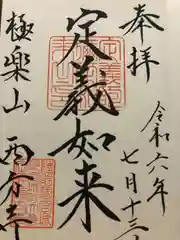 奉拝
令和六年
七月十三
定義如来
極楽山
西方寺